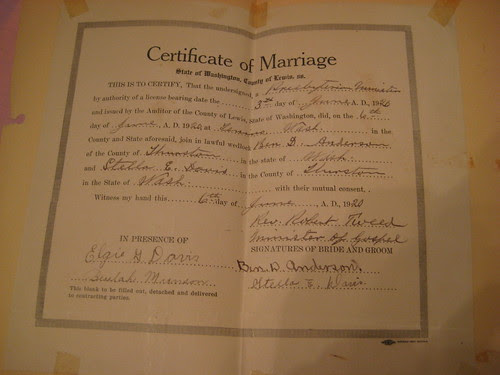 Certificate of Marriage
State of Washington, County of Lewis, ss.
THIS IS TO CERTIFY, That the undersigned, a Presbyterian Minister
by authority of a license bearing date the 5th day of June A. D., 1920
and issued by the Auditor of the County of Lewis, state of Washington, did, on the 6th
day of June, A. D., 1920 at Wash in the
County and State aforesaid, join in lawful wedlock Ben D. Anderson
of the County of Thurston in the state of Wash
and Stella E. Davis in the County of Thurston
in the State of Wash with their mutual consent.
Witness my hand this 6th day of June, A. D., 1920
Rev. Robert Tweed
Minister of Gospel
IN PRESENCE OF
SIGNATURES OF BRIDE AND GROOM
Elsie G Davis
Ben D. Anderson
Beulah Munson
Stella E. Davis
This blank to be filled out, detached and delivered
to contracting parties.